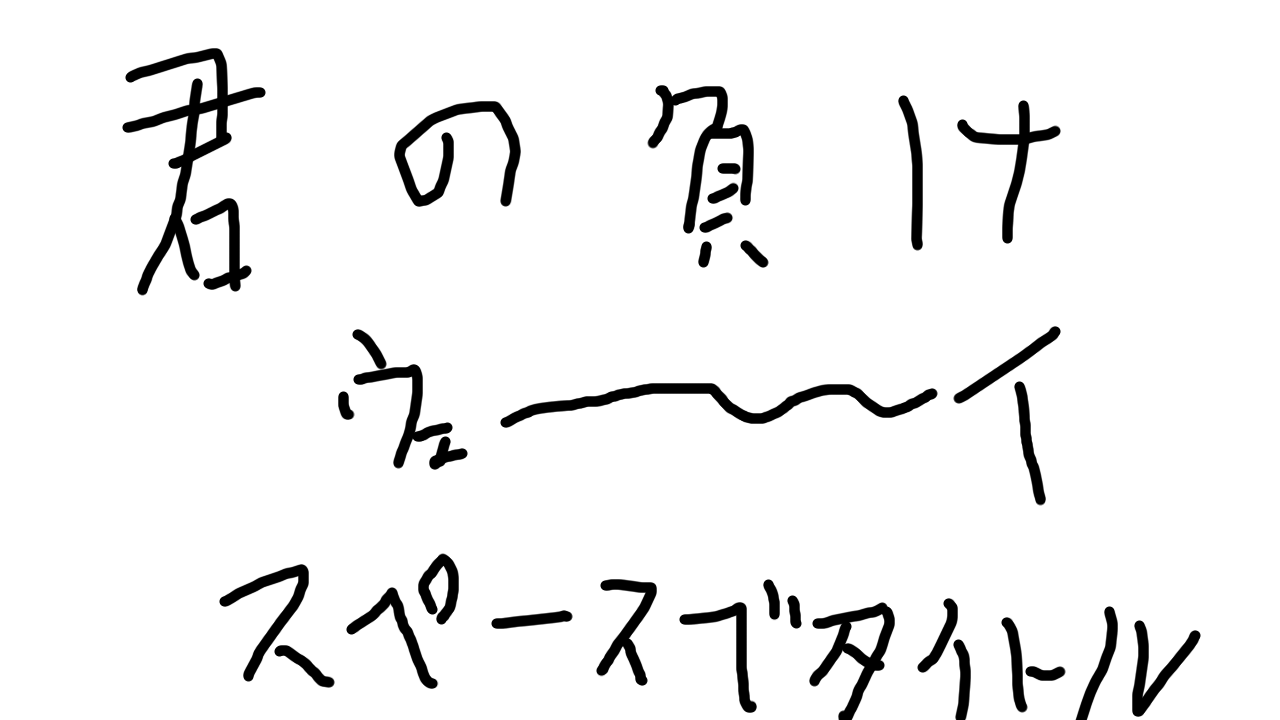 君の負け
ウェ〜イ
スペースでタイトル